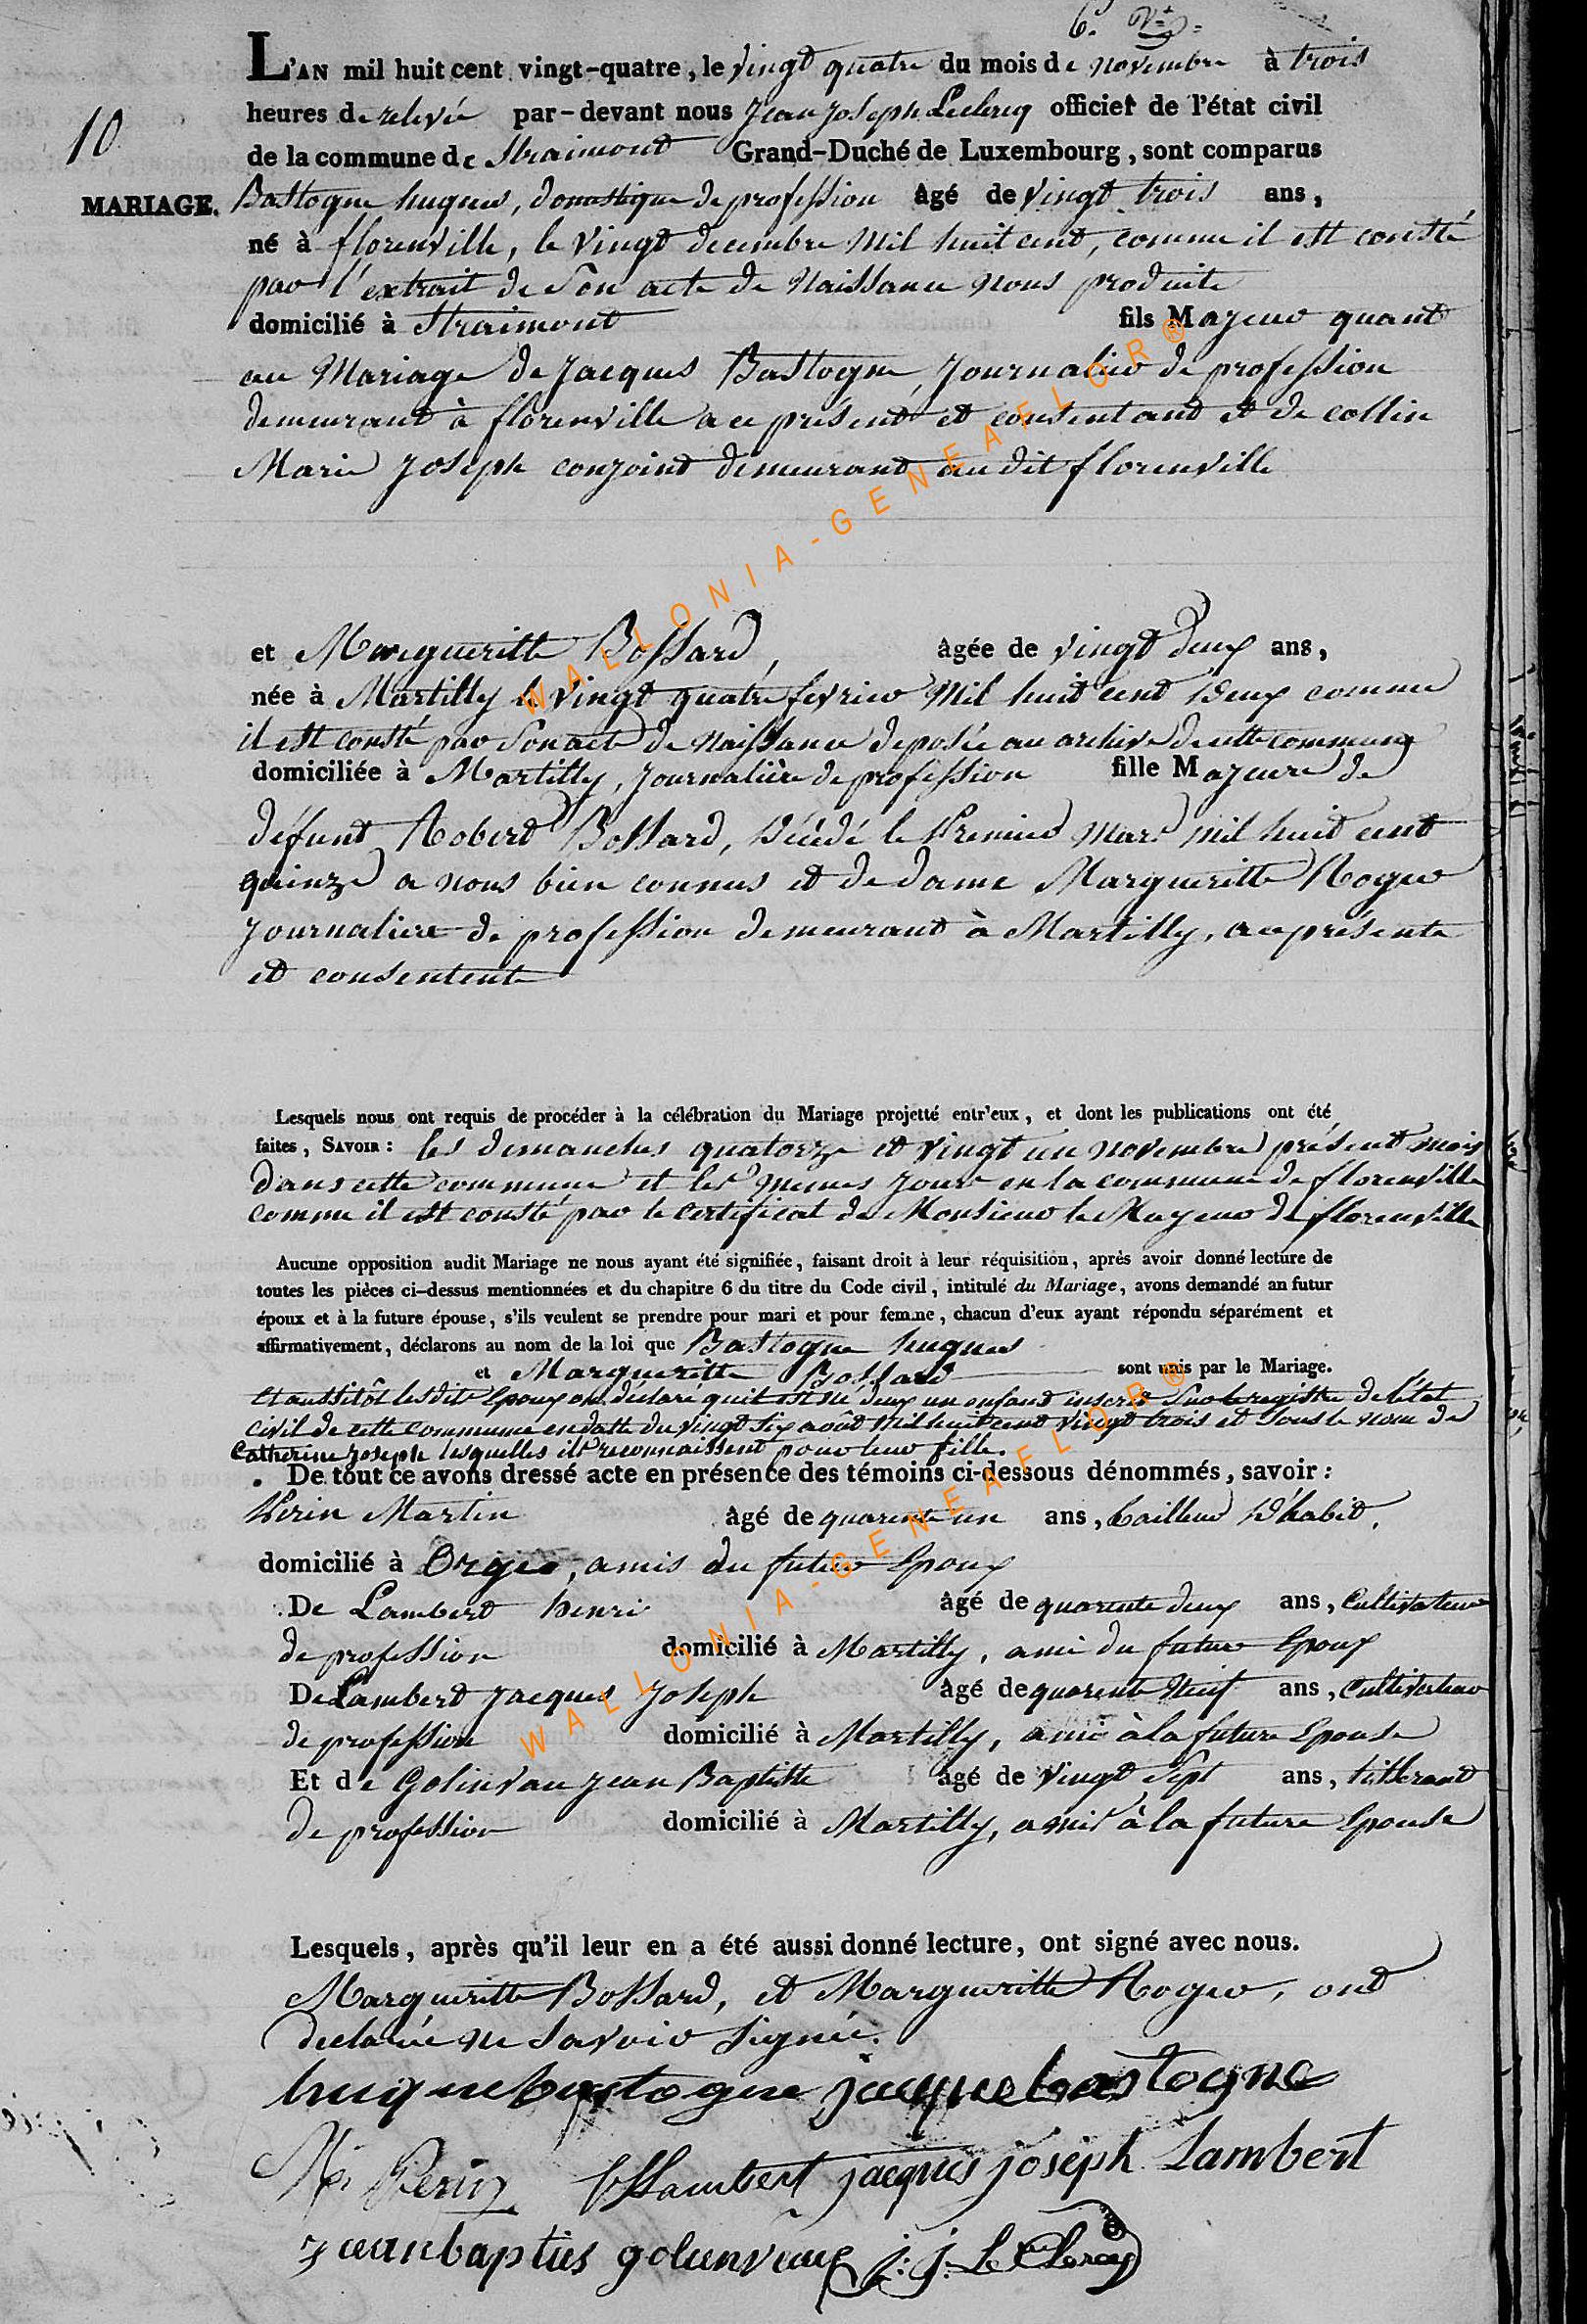 L'AN mil huit cent vingt-quatre, le vingt quatre du mois de novembre à trois
heures de relevée par-devant nous Jean Joseph Leclercq officier de l'état civil
10
de la commune de Straimont Grand-Duché de Luxembourg, sont comparus
MARIAGE. Bastogne hugues, domestique de profession âgé de vingt trois ans,
né à florenville, le vingt decembre mil huit cent, comme il est consté
par l'extrait de son acte de Naissance nous produite
domicilié à Straimont fils Mayeur quant
au Mariage de Jacques Bastogne, Journalier de profession
demeurant à florenville a ce présent et consentant et de collin
Marie Joseph conjoint demeurant au dit florenville
et Margueritte Bossard, âgée de vingt deux ans,
née à Martilly le vingt quatre fevrier Mil huit cent deux comme
il est consté par son acte de naissance deposée au archive de cette commune
domiciliée à Martilly, Journalière de profession fille Majeure de
défunt Robert Bossard, décédé le premier mars mil huit cent
quinze a nous bien connus et de dame Margueritte Roger
Journaliere de profession demeurant à Martilly, a ce présente
et consentente
Lesquels nous ont requis de procéder à la célébration du Mariage projetté entr'eux, et dont les publications ont été
faites, SAVOIR : les demanches quatorze et vingt un novembre présent mois
dans cette commune et les memes jour en la commune de florenville
comme il est consté par le certificat de Monsieur le Mayeur de florenville
Aucune opposition audit Mariage ne nous ayant été signifiée, faisant droit à leur réquisition, après avoir donné lecture de
toutes les pièces ci-dessus mentionnées et du chapitre 6 du titre du Code civil, intitulé du Mariage, avons demandé an futur
époux et à la future épouse, s'ils veulent se prendre pour mari et pour femme, chacun d'eux ayant répondu séparément et
affirmativement, déclarons au nom de la loi que Bastogne hugues
et Margueritte Bossard sont unis par le Mariage.
Et aussitôt lesdits Epoux ont déclaré quil est né deux un enfant inscrit sur le registre de l'état
civil de cette commune en datte du vingt six août mil huit cent vingt trois et sous le nom de
Catherine Joseph lesquelles ils reconnaissent pour leur fille.
De tout ce avons dressé acte en présence des témoins ci-dessous dénommés, savoir :
Perin Martin âgé de quarente un ans, tailleur d'habit,
domicilié à Orgeo, amis du futur Epoux
De Lambert henri âgé de quarente deux ans, Cultivateur
de profession domicilié à Martilly, ami du futur Epoux
De Lambert Jacques Joseph âgé de quarente neuf ans, Cultivateur
de profession domicilié à Martilly, ami à la future Epouse
Et de Golinvau Jean Baptiste âgé de vingt sept ans, tisserant
de profession domicilié à Martilly, amis à la future Epouse
Lesquels, après qu'il leur en a été aussi donné lecture, ont signé avec nous.
Margueritte Bossard, et Margueritte Roger, ont
declarée ne savoir signée.
huque bastogne jacque bastogne
M. Perin Lambert jacques joseph Lambert
jean baptiis golinvaux j: j. Le Clercq
WALLONIA-GENEAFLOR®
WALLONIA-GENEAFLOR®